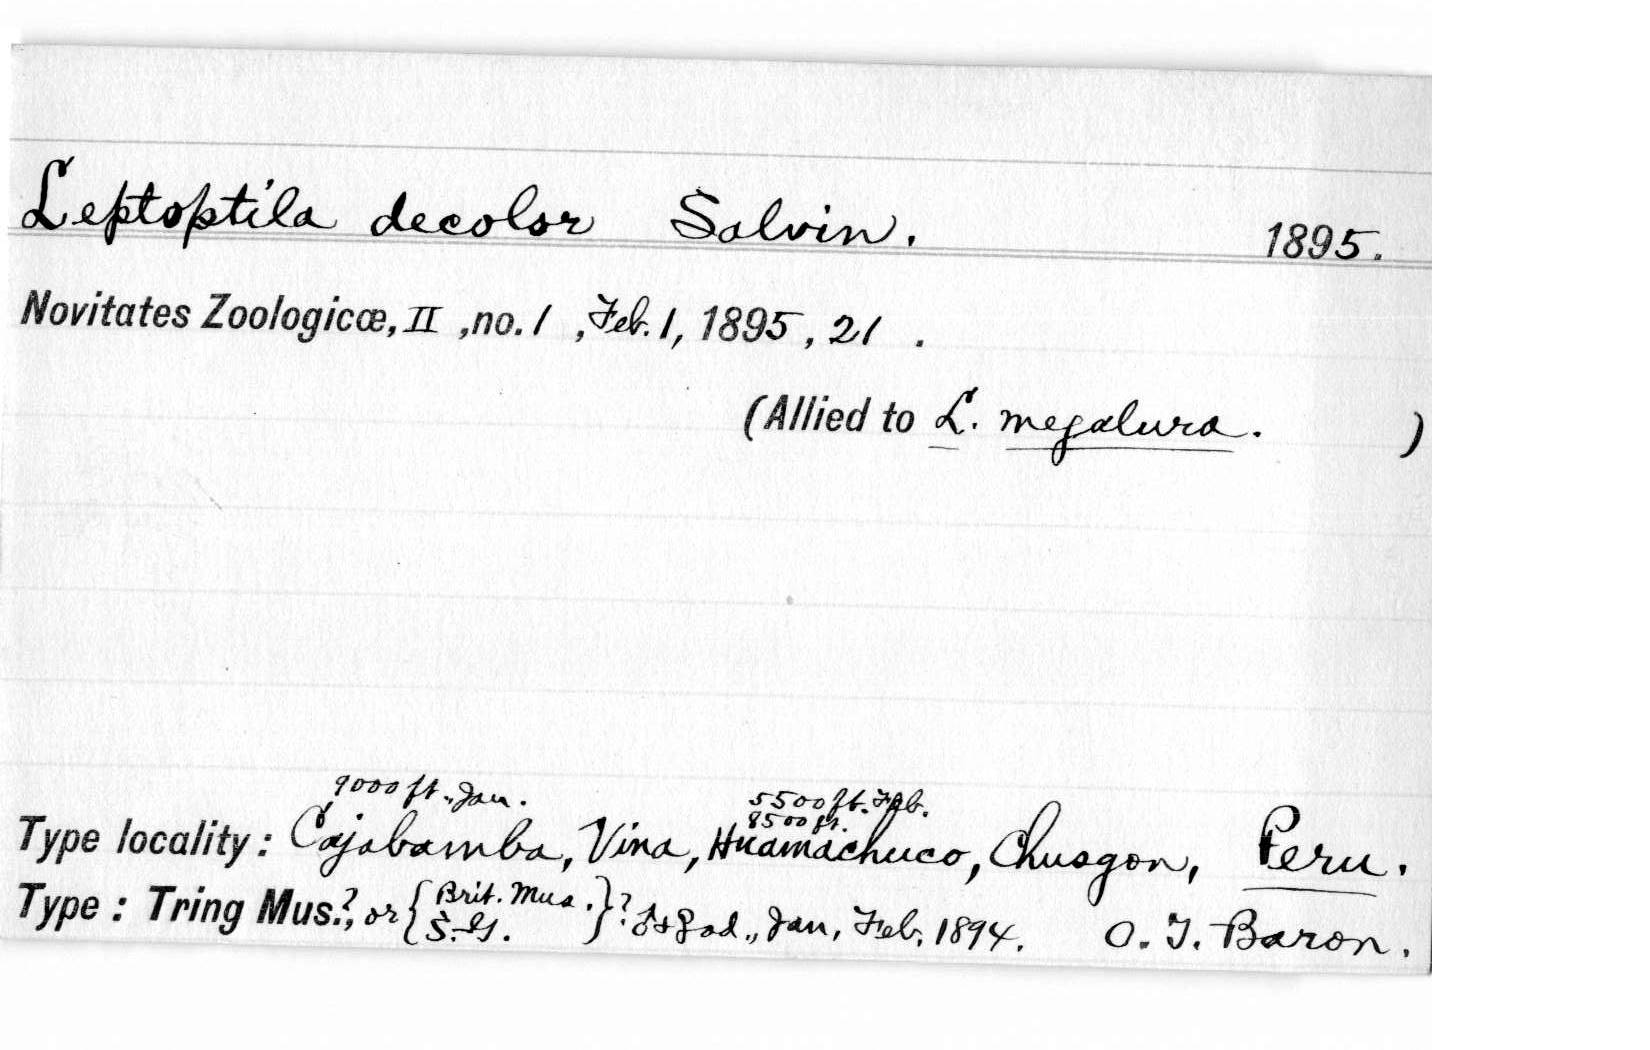 Leptoptila decolor Salvin. 1895.
Novitates Zoologicæ, II, no. 1, Feb. 1, 1895, 21.
(Allied to L. megalura. )
9000 ft., Jan. 5500 ft. Feb.
8500 ft.
Type locality: Cajabamba, Vina, Huamachuco, Chusgon, Peru.
Type: Tring Mus.?, or { Brit. Mus. S.-G. }? ♂+♀ ad., Jan, Feb, 1894. O. T. Baron.